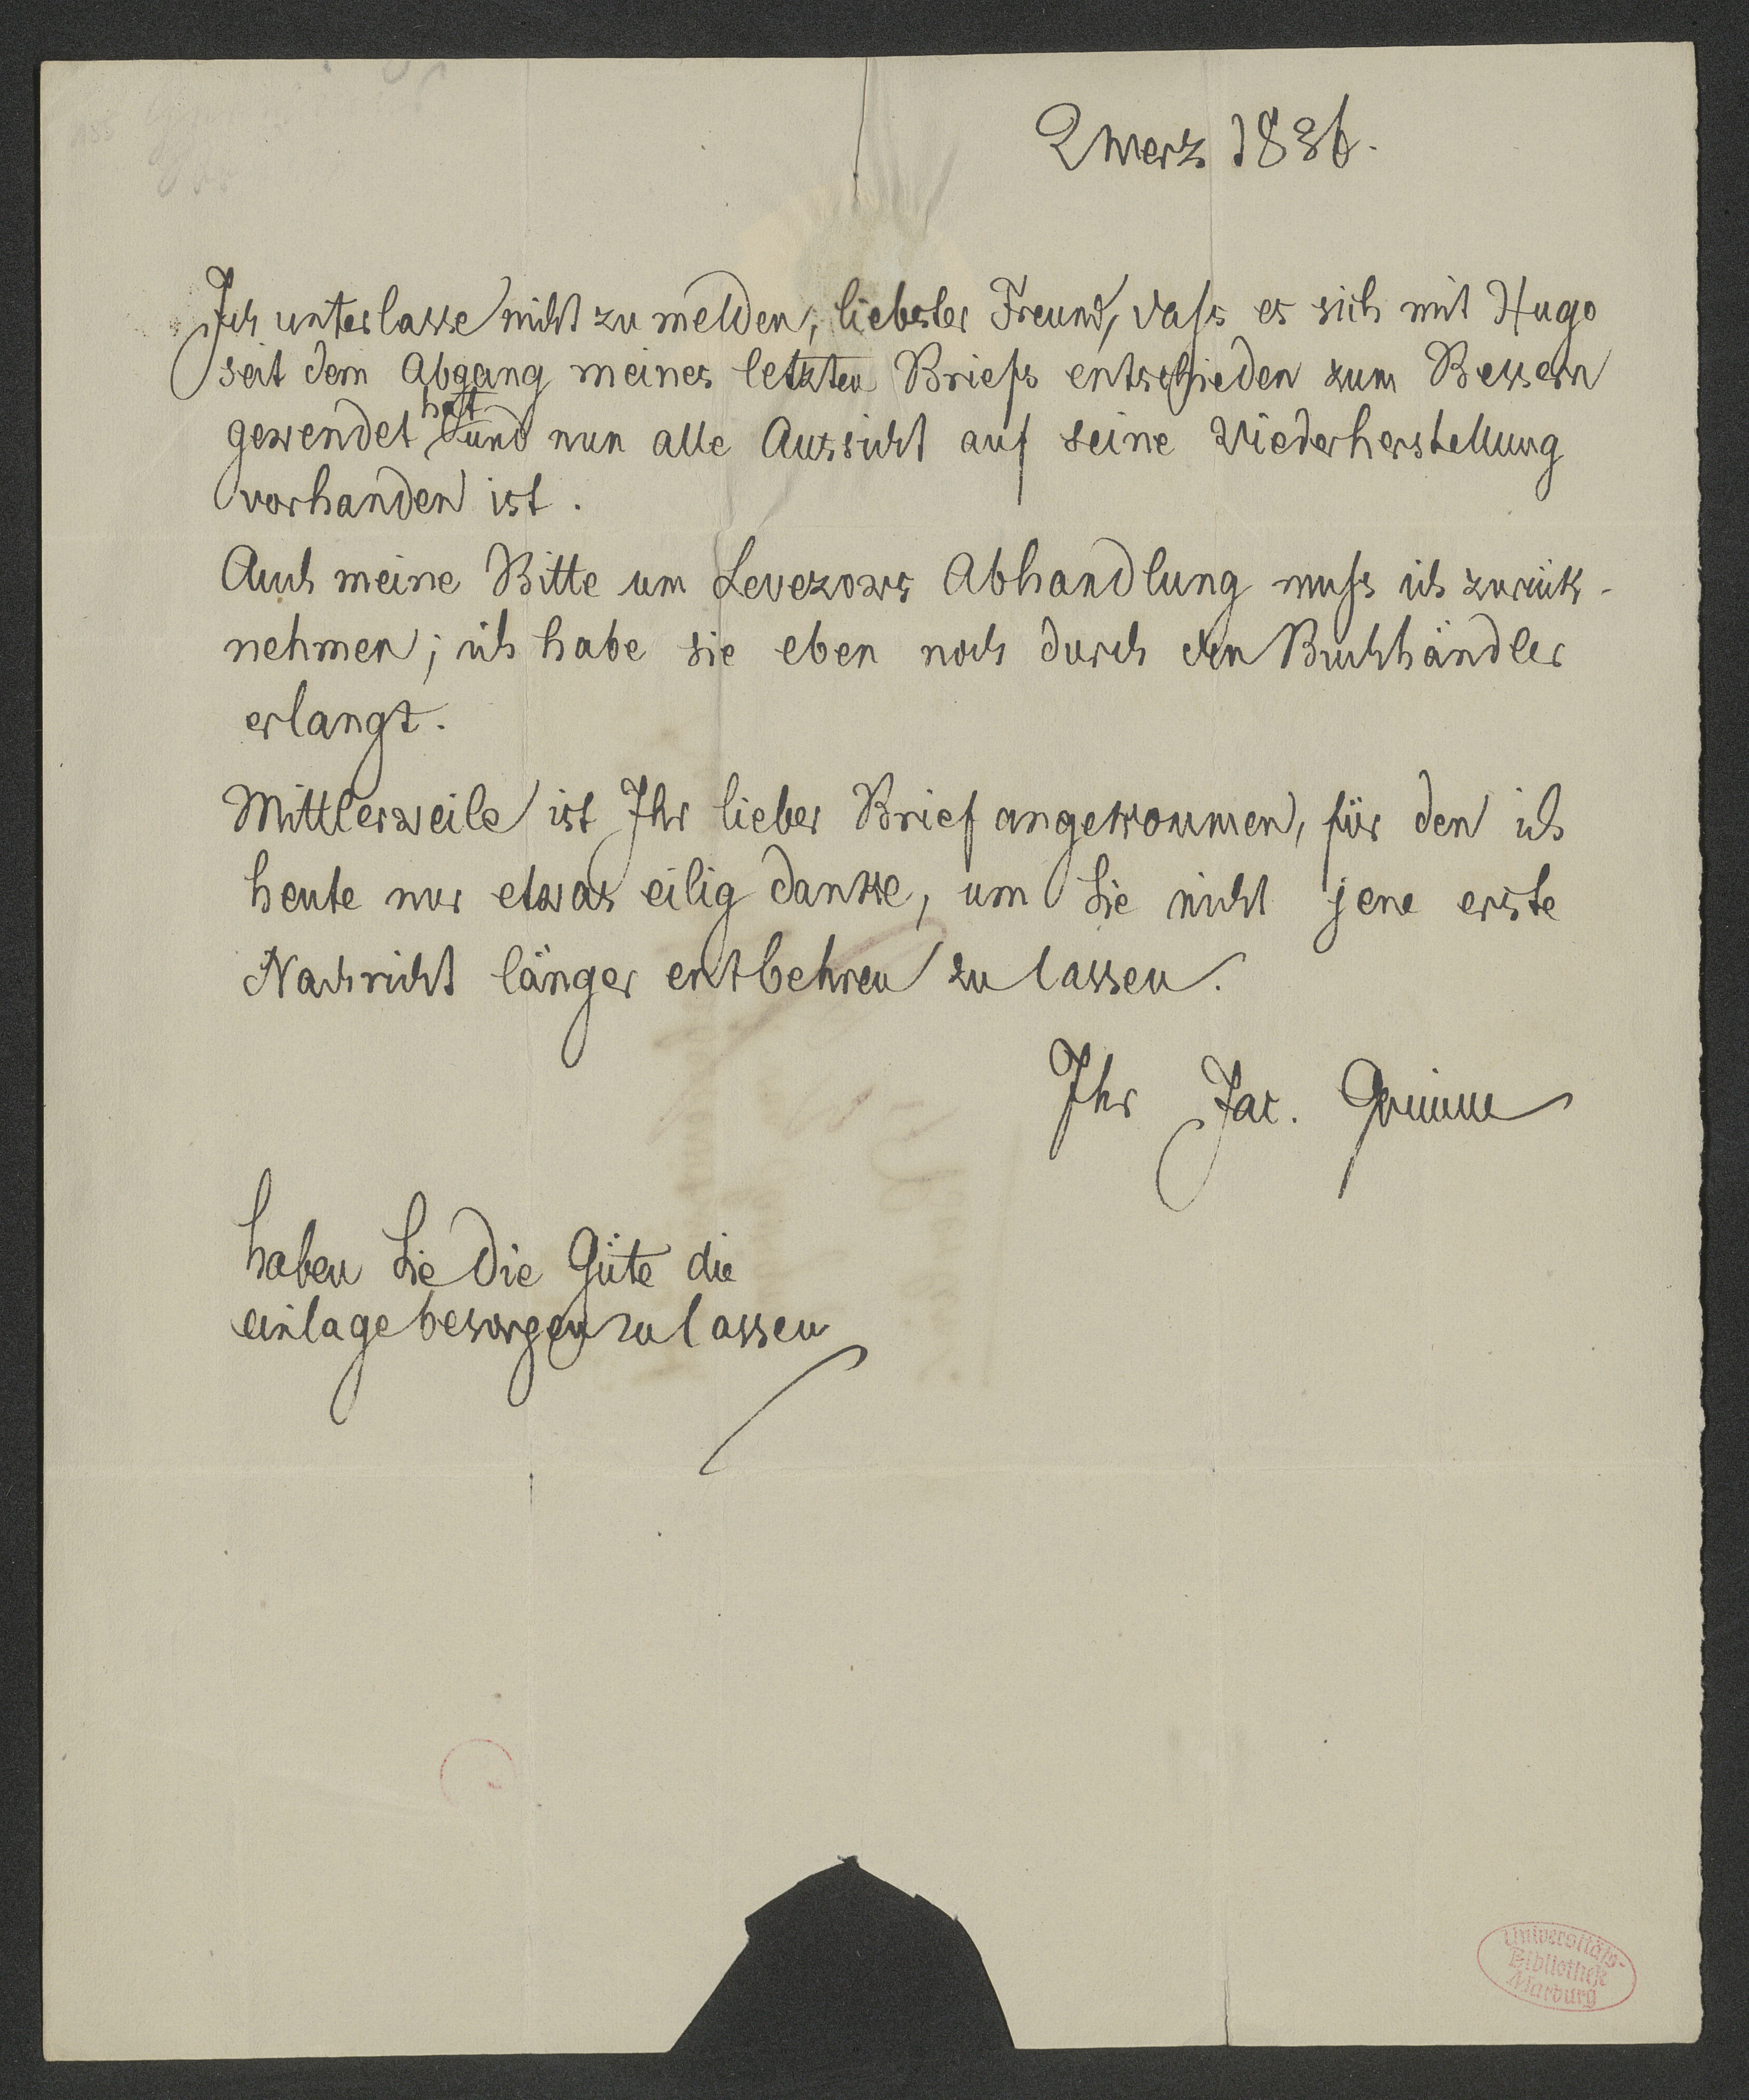 2 merz 1836.
Ich unterlasse nicht zu melden, liebster Freund, dass es sich mit Hugo
seit dem Abgang meines letzten Briefs entschieden zum Bessern
hat
gewendet und nun alle Aussicht auf seine Wiederherstellung
vorhanden ist.
Auch meine Bitte um Levezows Abhandlung muss ich zurück-
nehmen; ich habe sie eben noch durch den Buchhändler
erlangt.
Mittlerweile ist Ihr lieber Brief angekommen, für den ich
heute nur etwas eilig danke, um Sie nicht jene erste
Nachricht länger entbehren zu lassen.
Ihr Jac. Grimm
haben Sie die Güte die
einlage besorgen zu lassen
Universitäts-
Bibliothek
Marburg